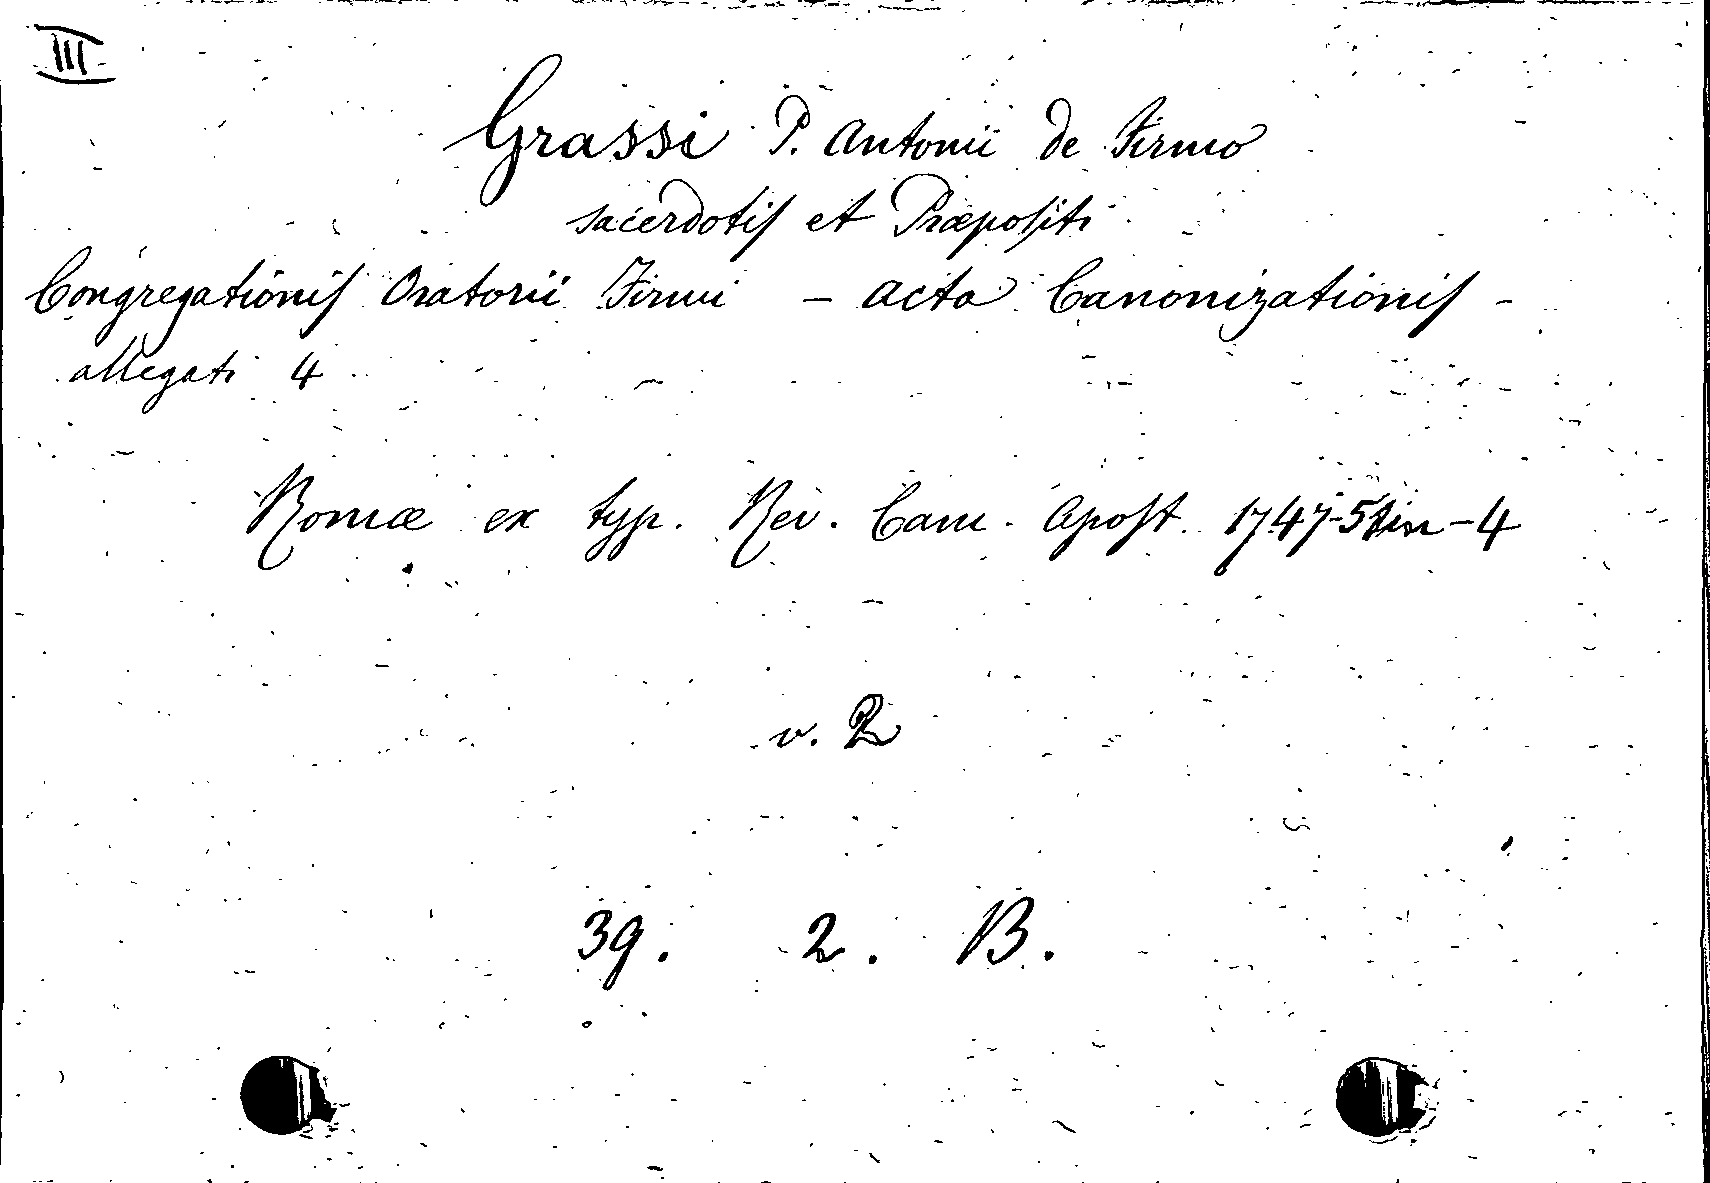 III
Grassi P. Antonii de Firmo
sacerdotis et Præpositi
Congregationis Oratorii Firmi - acta Canonizationis -
allegati 4
Romæ ex typ. Rev. Cam. Apost. 1747-51 in-4
v. 2
39. 2. B.